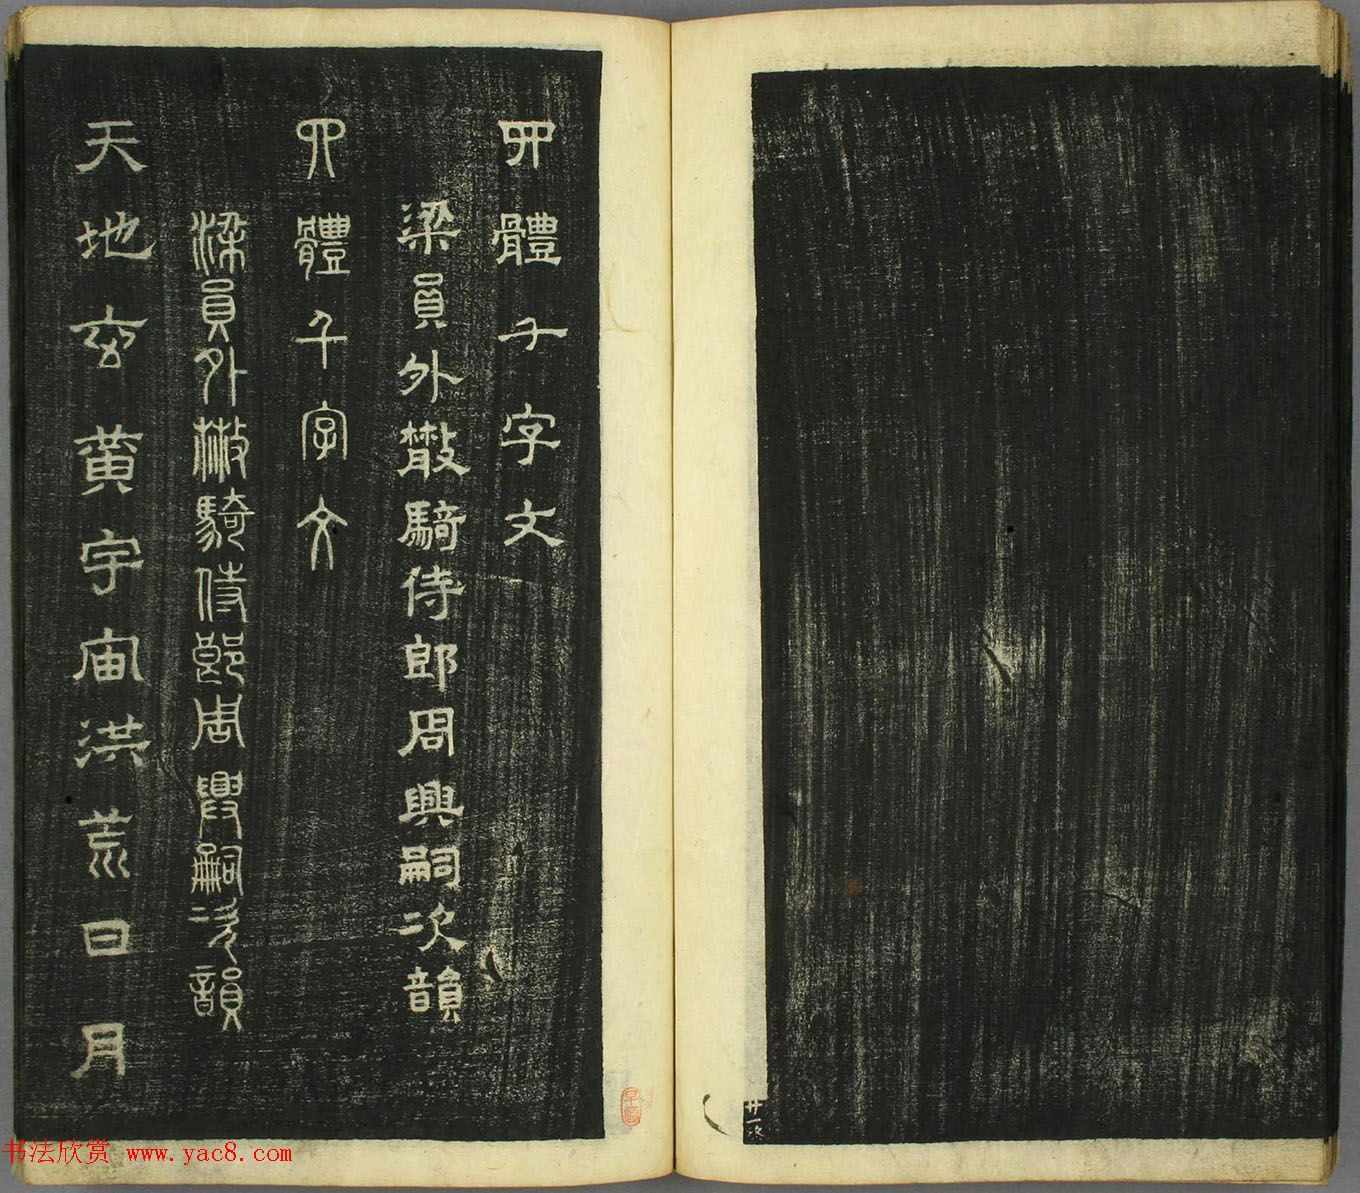 四體千字文
梁員外散騎侍郎周興嗣次韻
四體千字文
梁員外散騎侍郎周興嗣次韻
天地玄黃宇宙洪荒日月
廿一次
书法欣赏 www.yac8.com